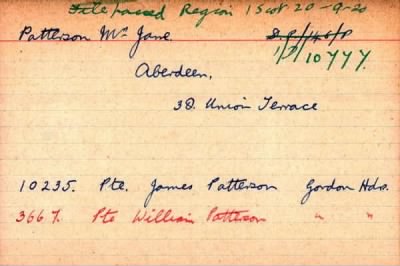 File passed Region 1 Scot 20-9-20
Patterson Mrs Jane. D.P/146/P
1/P/10777
Aberdeen,
30. Union Terrace
10235. Pte. James Patterson Gordon Hdrs.
3667. Pte William Patterson " "